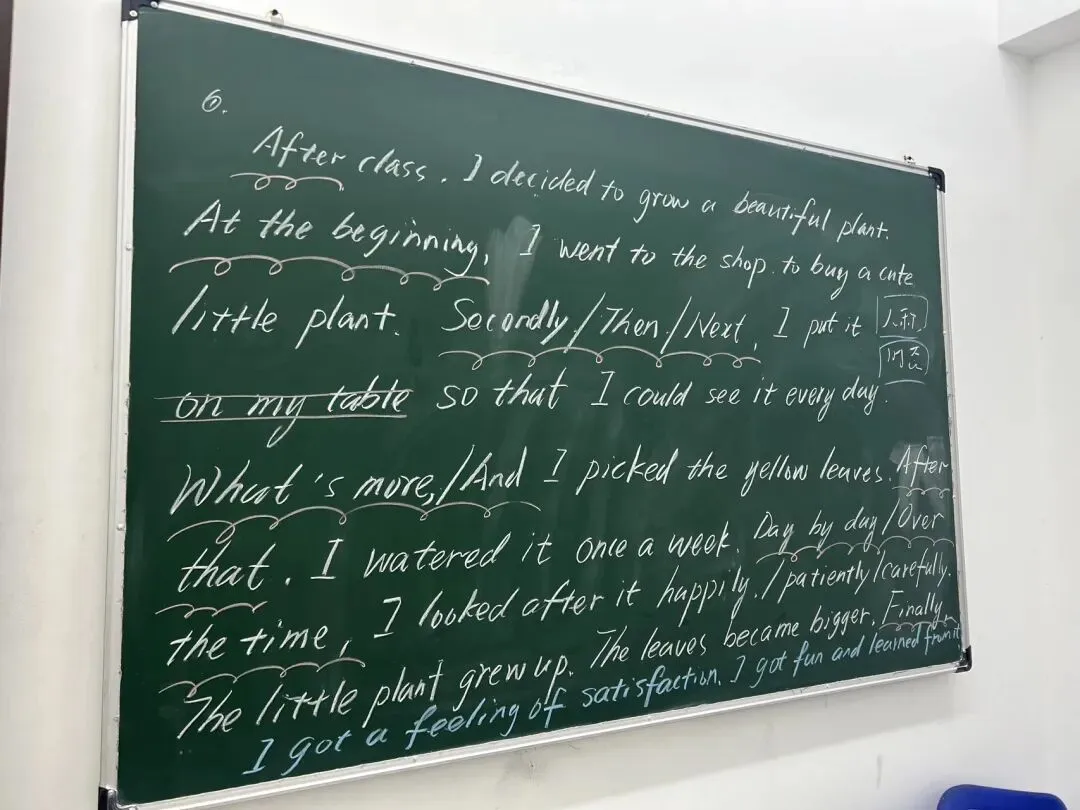 6.
After class. I decided to grow a beautiful plant.
At the beginning, I went to the shop to buy a cute
little plant. Socondly/Then/Next, I put it 人称
on my table so that I could see it every day. 时态
What's more,/And I picked the yellow leaves. After
that. I watered it once a week. Day by day/Over
the time, I looked after it happily./patiently/carefully.
The little plant grew up. The leaves became bigger. Finally,
I got a feeling of satisfaction. I got fun and learned from it